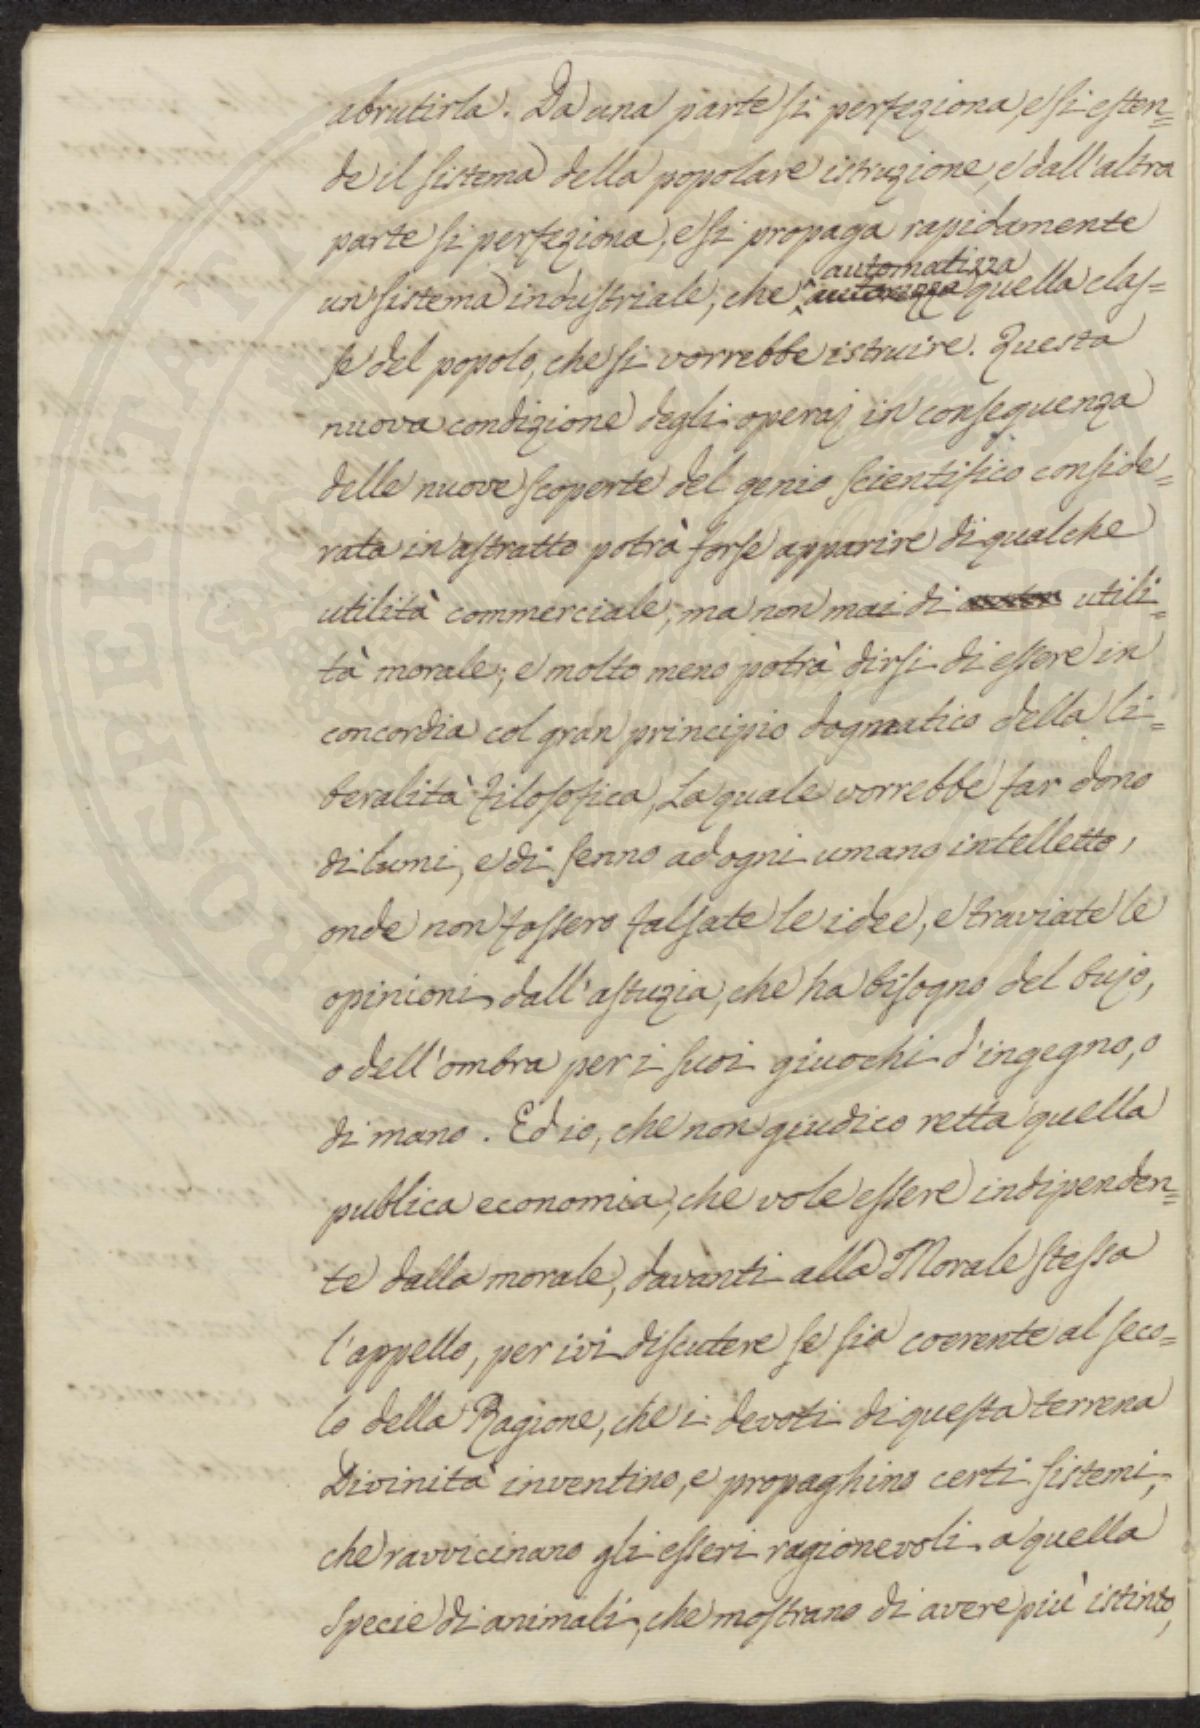 abrutirla. Da una parte si perfeziona, e si esten=
de il sistema della popolare istruzione, e dall'altra
parte si perfeziona, e si propaga rapidamente
automatizza
un sistema industriale, che quella clas=
se del popolo, che si vorrebbe istruire. Questa
nuova condizione degli operaj in conseguenza
delle nuove scoperte del genio scientifico conside=
rata in astratto potrà forse apparire di qualche
utilità commerciale; ma non mai di utili=
tà morale; e molto meno potrà dirsi di essere in
concordia col gran principio dogmatico della li=
beralità filosofica, la quale vorrebbe far dono
di lumi, e di senno ad ogni umano intelletto,
onde non fossero falsate le idee, e traviate le
opinioni dall'astuzia, che ha bisogno del bujo,
o dell'ombra per i suoi giuochi d'ingegno, o
di mano. Ed io, che non giudico retta quella
publica economia, che vole essere indipenden=
te dalla morale, davanti alla Morale stessa
l'appello, per ivi discutere se sia coerente al seco=
lo della Ragione, che i devoti di questa terrena
Divinità inventino, e propaghino certi sistemi,
che ravvicinano gli esseri ragionevoli a quella
specie di animali, che mostrano di avere più istinto,
PROSPERITATI PUBLICAE